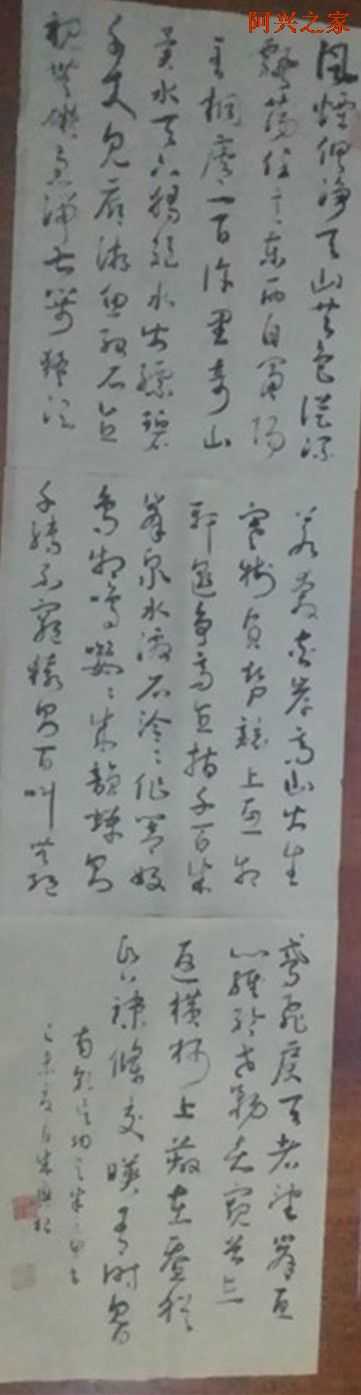 阿兴之家
風煙俱淨天山共色從流
飄蕩任意東西自富陽
至桐廬一百許里奇山
異水天下獨絕水皆縹碧
千丈見底游魚細石直
視無礙急湍甚箭猛浪
若奔夾岸高山皆生
寒樹負勢競上互相
軒邈爭高直指千百成
峯泉水激石泠泠作響好
鳥相鳴嚶嚶成韻蟬則
千轉不窮猿則百叫無絕
鳶飛戾天者望峯息
心經綸世務者窺谷忘
返橫柯上蔽在晝猶
昏疎條交暎有時見日
南朝吳均
乙未夏月朱